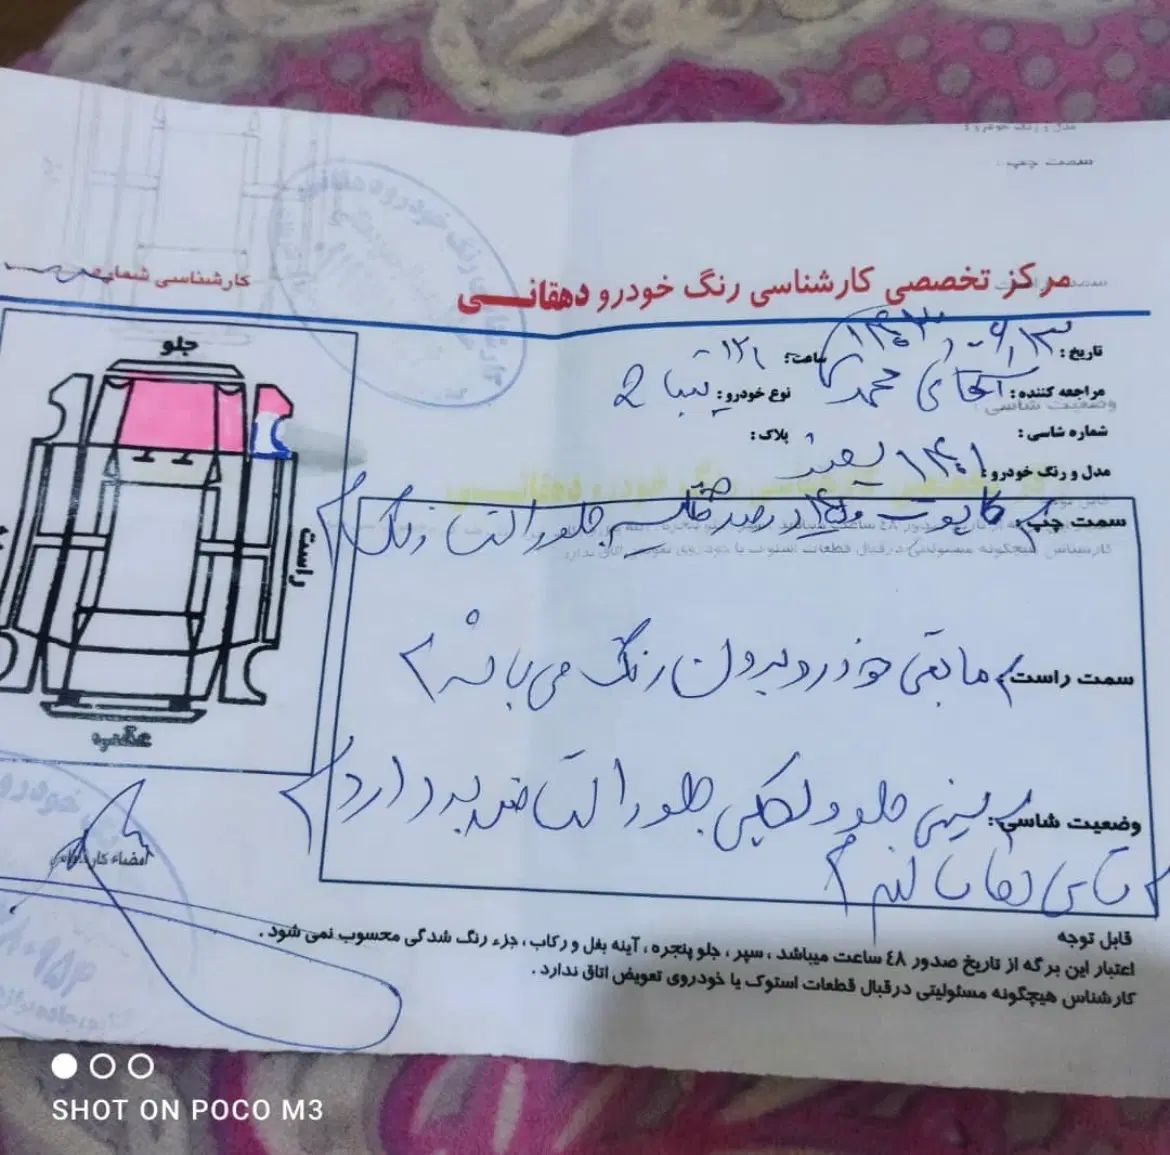 مرکز تخصصی کارشناسی رنگ خودرو دهقانی
کارشناسی شماره
تاریخ: ۱۴۰۳/۰۶/۱۳ ساعت: ۱۲
مراجعه کننده: آقای محمدی نوع خودرو: تیبا 2
شماره شاسی: پلاک:
مدل و رنگ خودرو: ۱۴۰۱ سفید
جلو
راست
عقب
سمت چپ: کاپوت و درصد گلگیر جلو راست رنگ
سمت راست: مابقی خودرو بدون رنگ می باشد
وضعیت شاسی: سینی جلو و جلو راست ضربه دارد
امضاء کارشناس
قابل توجه
اعتبار این برگه از تاریخ صدور ۴۸ ساعت میباشد ، سپر ، جلو پنجره ، آینه بغل و رکاب ، جزء رنگ شدگی محسوب نمی شود .
کارشناس هیچگونه مسئولیتی درقبال قطعات استوک یا خودروی تعویض اتاق ندارد .
SHOT ON POCO M3